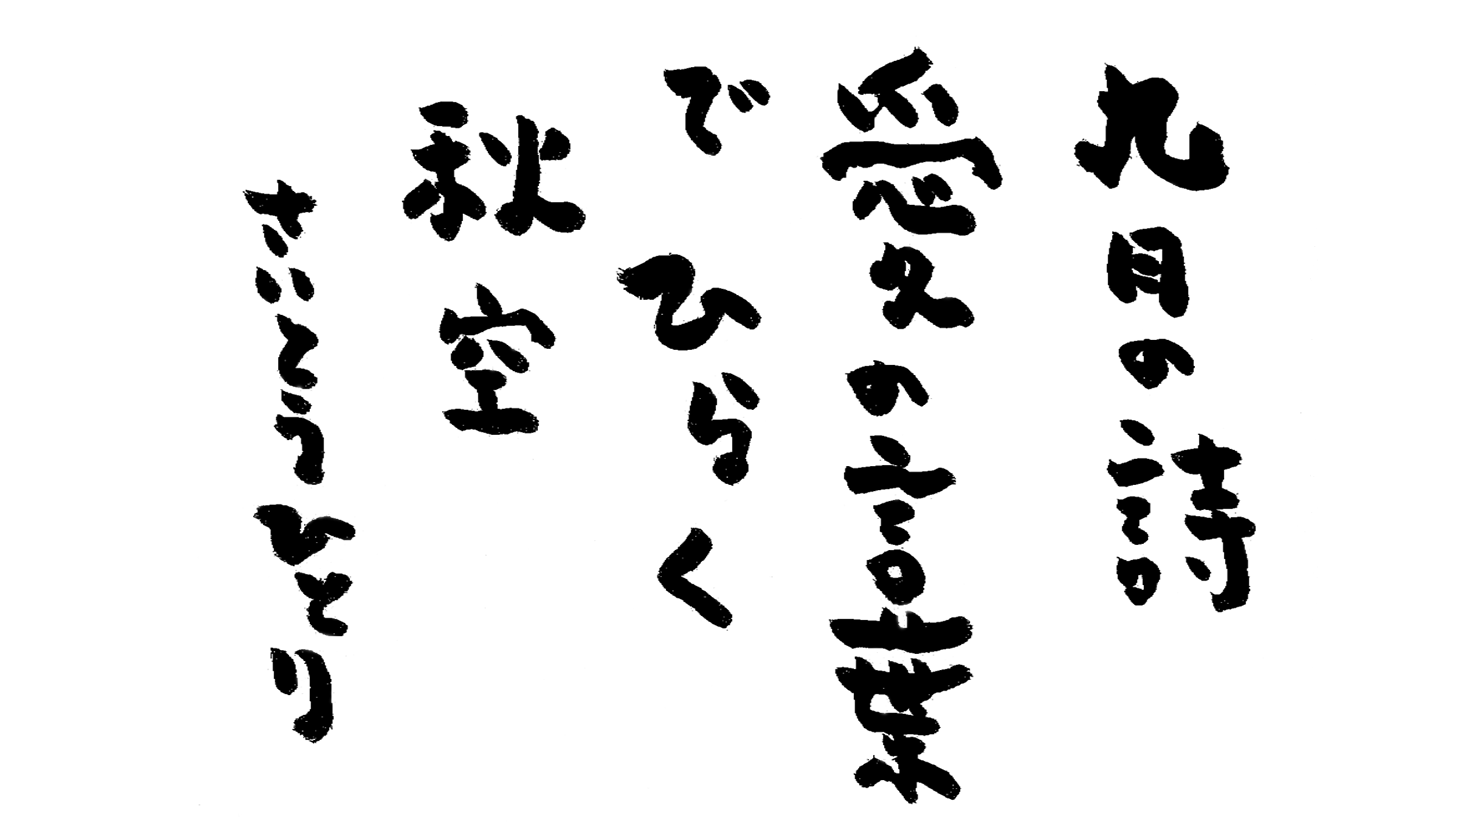 九月の詩
愛の言葉
で ひらく
秋空
さいとうひとり